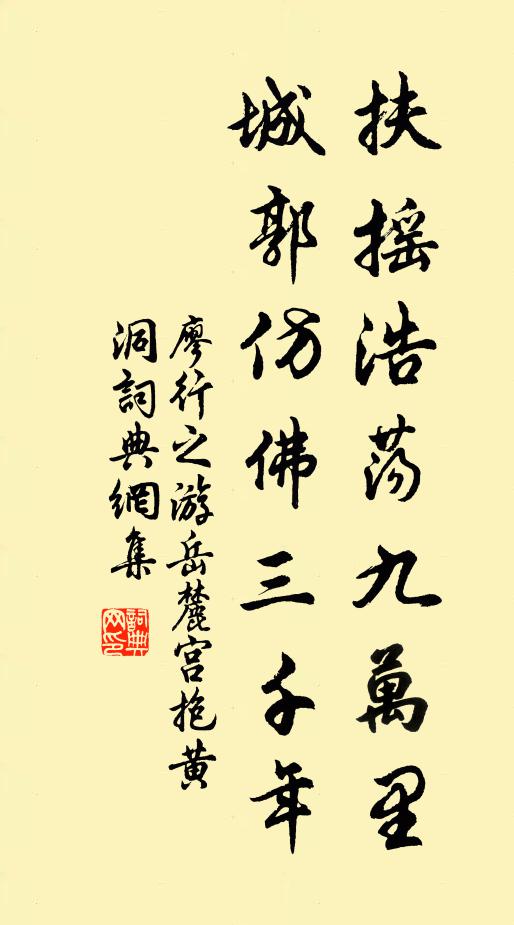 扶摇浩荡九萬里
城郭仿佛三千年
廖行之游岳麓宫抱黄
洞詞典網集
詞典
网印